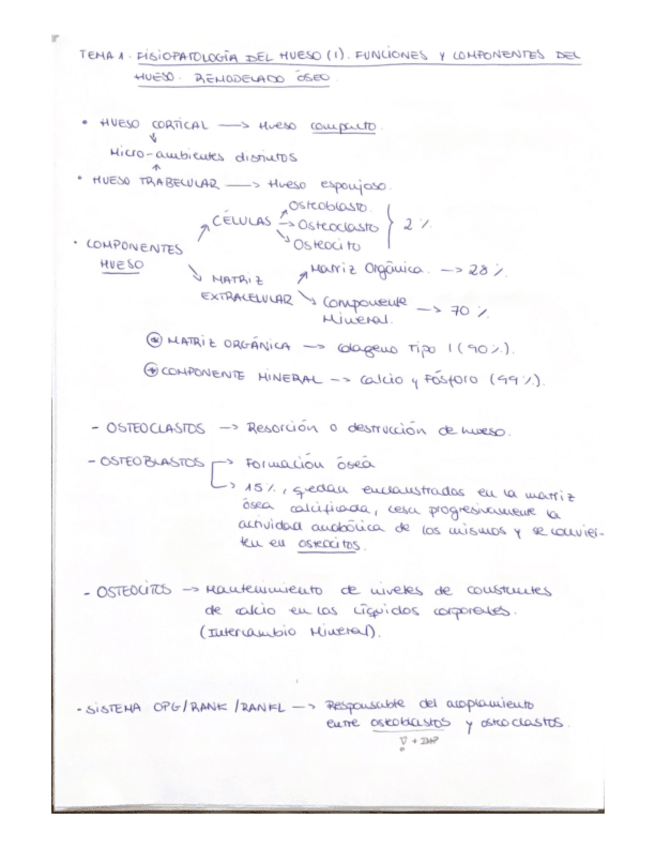 TEMA 1. FISIOPATOLOGÍA DEL HUESO (1). FUNCIONES Y COMPONENTES DEL
HUESO. REMODELADO ÓSEO.
• HUESO CORTICAL —> Hueso compacto.
↓
Micro-ambientes distintos
↑
• HUESO TRABECULAR —> Hueso esponjoso.
• COMPONENTES HUESO
↗ CÉLULAS
↗ Osteoblasto
→ Osteoclasto } 2%
↘ Osteocito
↘ MATRIZ EXTRACELULAR
↗ Matriz Orgánica. —> 28%
↘ Componente Mineral. —> 70%
* MATRIZ ORGÁNICA —> colágeno Tipo I (90%).
* COMPONENTE MINERAL --> calcio y Fósforo (99%).
- OSTEOCLASTOS —> Resorción o destrucción de hueso.
- OSTEOBLASTOS —> Formación ósea
—> 15%, quedan enclaustrados en la matriz
ósea calcificada, cesa progresivamente la
actividad anabólica de los mismos y se convier-
ten en osteocitos.
- OSTEOCITOS —> Mantenimiento de niveles de constantes
de calcio en los líquidos corporales.
(Intercambio Mineral).
- SISTEMA OPG/RANK/RANKL —> Responsable del acoplamiento
entre osteoblastos y osteoclastos.
+ IMP